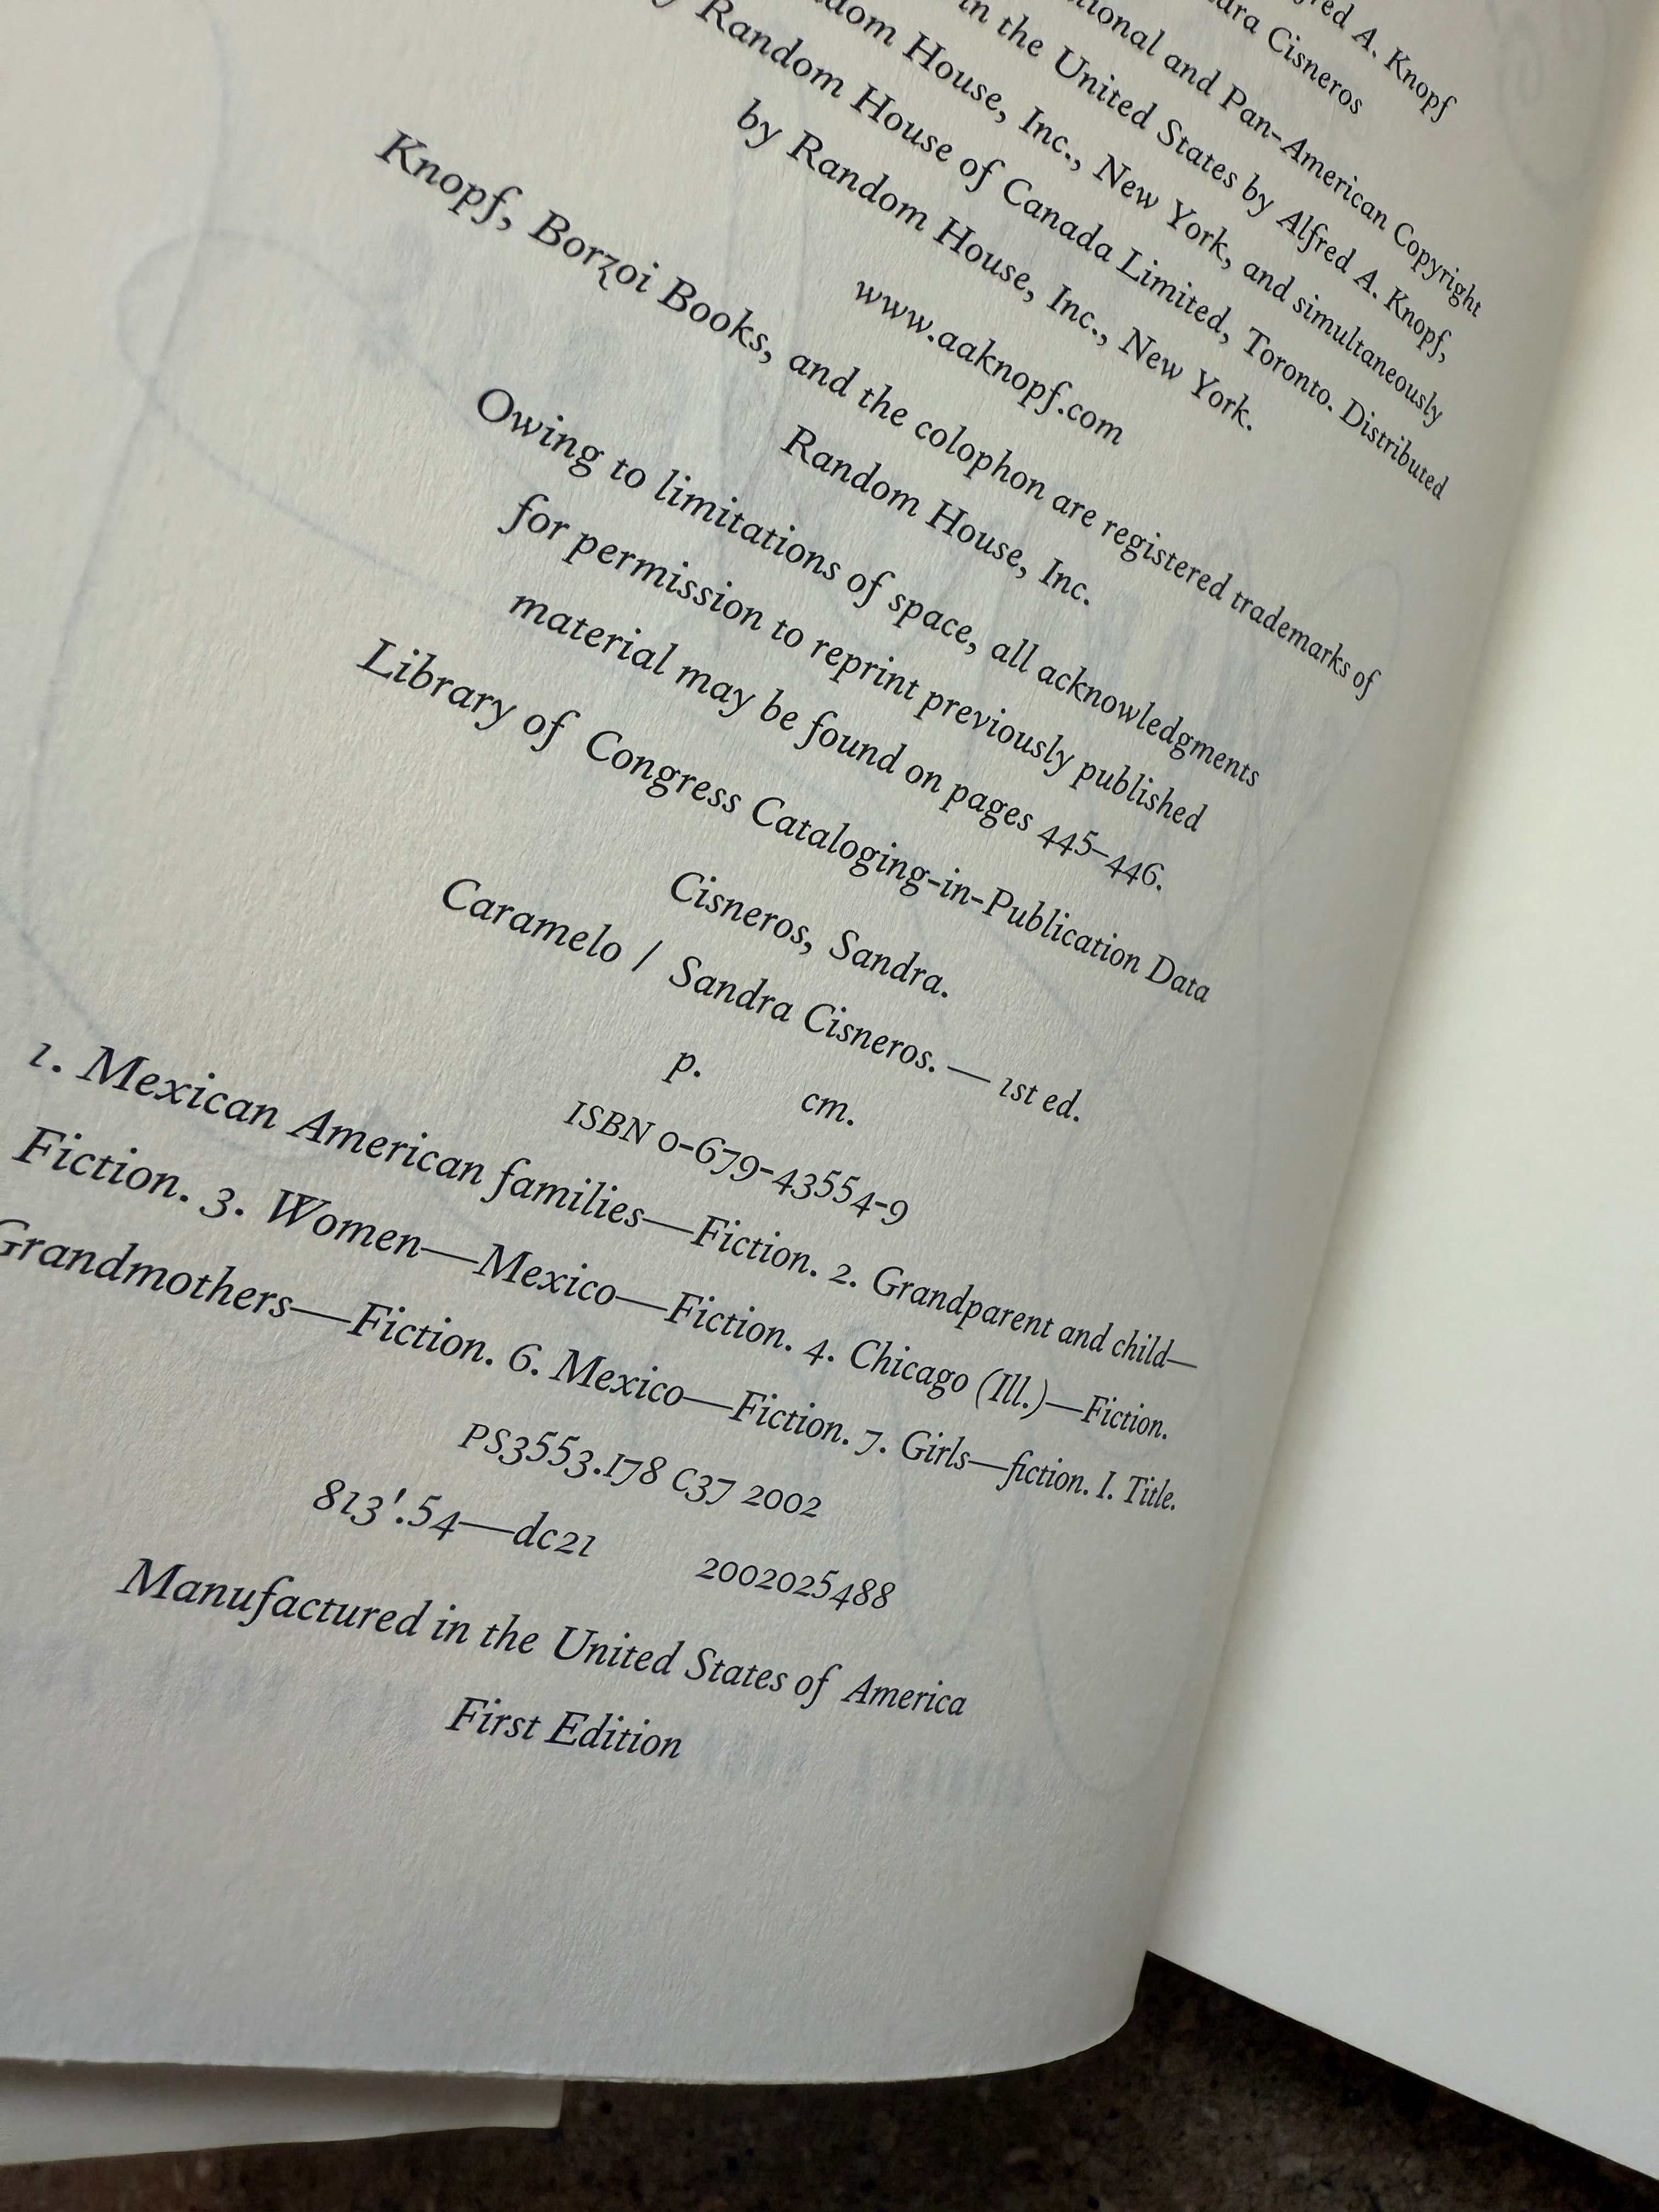 red A. Knopf
Cisneros
and Pan-American Copyright
in the United States by Alfred A. Knopf,
House, Inc., New York, and simultaneously
Random House of Canada Limited, Toronto. Distributed
by Random House, Inc., New York.
www.aaknopf.com
Knopf, Borzoi Books, and the colophon are registered trademarks of
Random House, Inc.
Owing to limitations of space, all acknowledgments
for permission to reprint previously published
material may be found on pages 445–446.
Library of Congress Cataloging-in-Publication Data
Cisneros, Sandra.
Caramelo / Sandra Cisneros. — 1st ed.
p. cm.
ISBN 0-679-43554-9
1. Mexican American families—Fiction. 2. Grandparent and child—
Fiction. 3. Women—Mexico—Fiction. 4. Chicago (Ill.)—Fiction.
Grandmothers—Fiction. 6. Mexico—Fiction. 7. Girls—fiction. I. Title.
PS3553.I78 C37 2002
813'.54—dc21 2002025488
Manufactured in the United States of America
First Edition